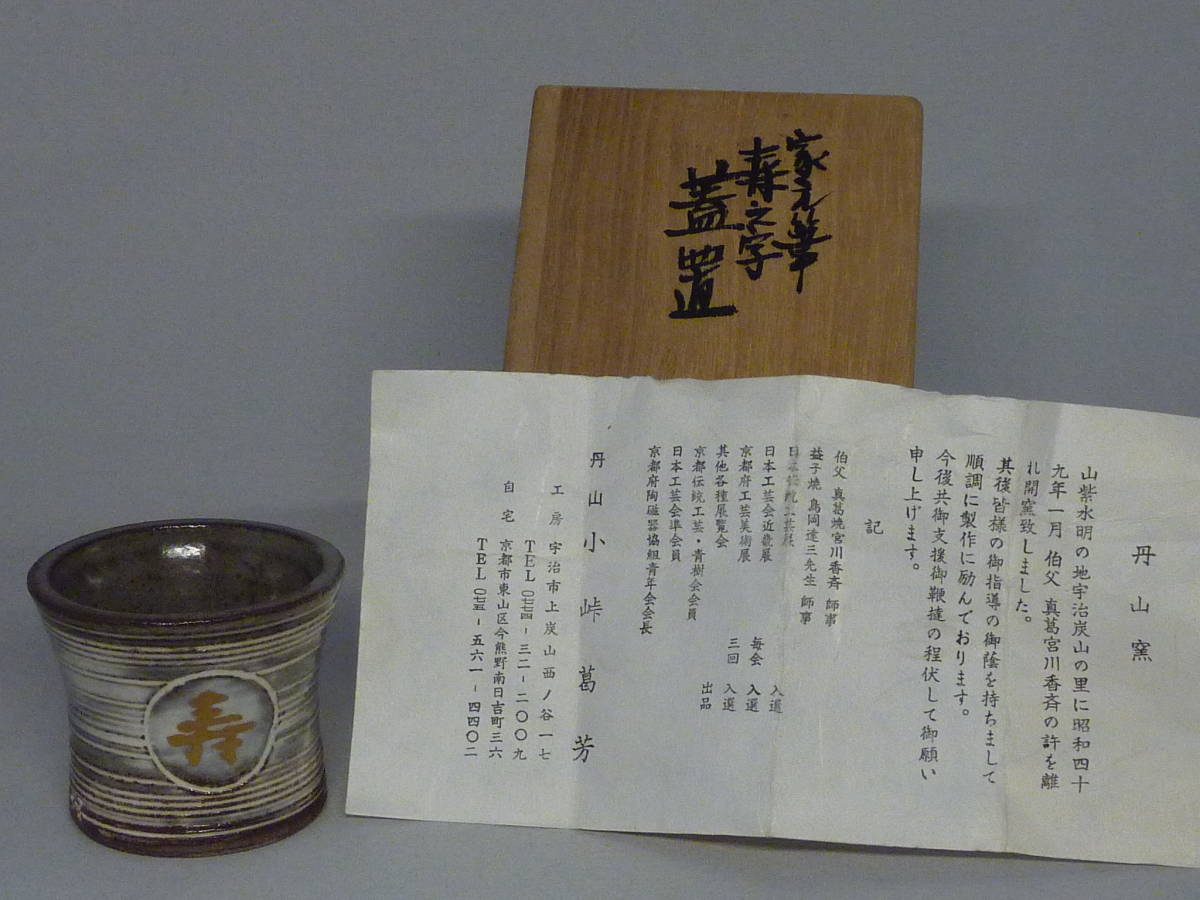 家元筆
寿之字
蓋置
寿
丹山窯
山紫水明の地宇治炭山の里に昭和四十
九年一月 伯父 真葛宮川香斉の許を離
れ開窯致しました。
其後皆様の御指導の御蔭を持ちまして
順調に製作に励んでおります。
今後共御支援御鞭撻の程伏して御願い
申し上げます。
記
伯父 真葛焼宮川香斉 師事
益子焼 島岡達三先生 師事
日本伝統工芸展 入選
日本工芸会近畿展 毎会 入選
京都府工芸美術展 三回 入選
其他各種展覧会 出品
京都伝統工芸・青樹会会員
日本工芸会準会員
京都府陶磁器協組青年会会長
丹山 小峠葛芳
工房 宇治市上炭山西ノ谷一七
TEL 〇七七四-三二-二〇〇九
自宅 京都市東山区今熊野南日吉町三六
TEL 〇七五-五六一-四四〇二